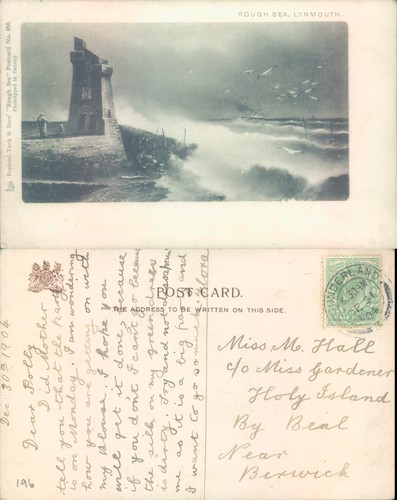 ROUGH SEA, LYNMOUTH.
Raphael Tuck & Sons' "Rough Sea" Postcard No.
Phototyped in Saxony
POST CARD.
THE ADDRESS TO BE WRITTEN ON THIS SIDE.
SUNDERLAND
Miss. M. Hall
c/o Miss Gardener
Holy Island
By Beal
Near
Berwick
Dec. 30th 1904
Dear Polly
Did Mother
tell you that the
is on Monday. I am wondering
how you are getting on with
my Blouse. I hope you
will get it done, because
if you don't I can't go because
the silk on my green dress
is dirty. Try and not
me as it is a big party and
I want to go so
Flora
196